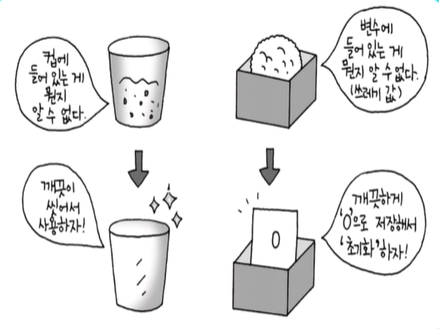 컵에
들어 있는 게
뭔지
알 수 없다.
변수에
들어 있는 게
뭔지 알 수 없다.
(쓰레기 값)
깨끗이
씻어서
사용하자!
깨끗하게
'0'으로 저장해서
'초기화'하자!
0